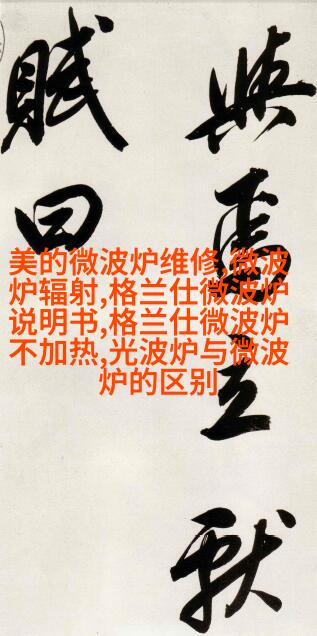 與焉立献
賦曰
美的微波炉维修,微波
炉辐射,格兰仕微波炉
说明书,格兰仕微波炉
不加热,光波炉与微波
炉的区别